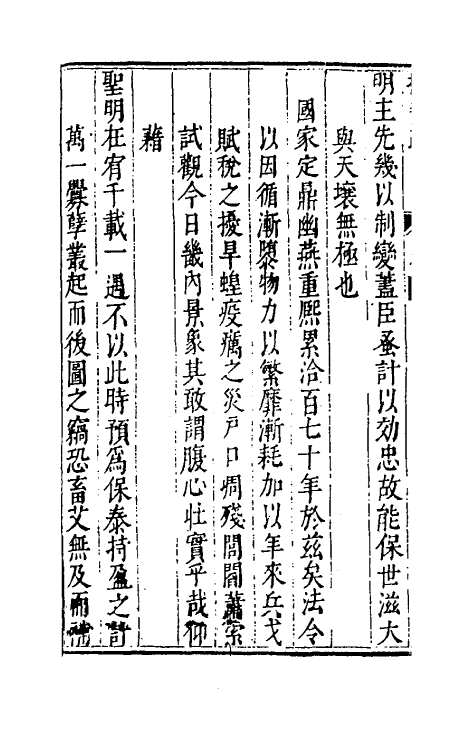 明主先幾以制變藎臣蚤計以効忠故能保世滋大
與天壤無極也
國家定鼎幽燕重熈累洽百七十年於茲矣法令
以因循漸隳物力以繁靡漸耗加以年來兵戈
賦稅之擾旱蝗疫癘之災戸口凋殘閭閻蕭索
試觀今日畿內景象其敢謂腹心壯實乎哉仰
藉
聖明在宥千載一遇不以此時預爲保泰持盈之計
萬一釁孽叢起而後圖之竊恐畜艾無及而